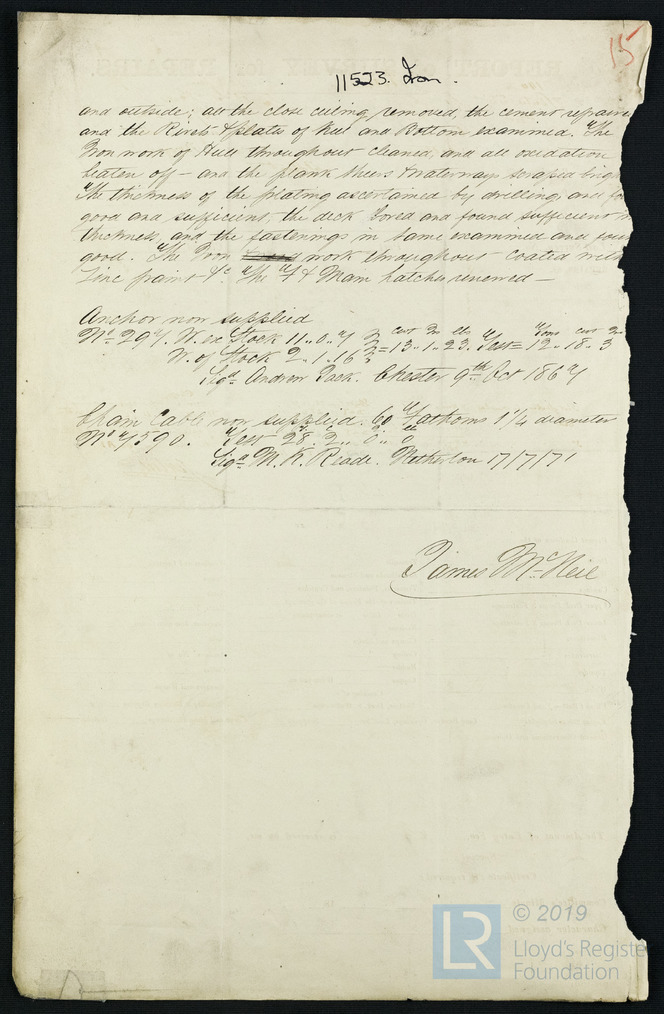 15
11523. Iron.
and outside; all the close ceiling removed, the cement repaire
and the Rivets & plates of Keel and Bottom examined. The
Iron work of Hull throughout cleaned, and all oxidation
beaten off – and the plank sheers Waterways scraped brigh
The thickness of the plating ascertained by drilling, and fo
good and sufficient, the deck bored and found sufficient in
thickness, and the fastenings in same examined and foun
good. The Iron work throughout coated with
Zinc paint &c. The F & Main hatches renewed –
Anchor now supplied
No 297. W. ex Stock 11.. 0.. 7 cwt qr lbs = 13.. 1.. 23. Test = Tons cwt qr 12.. 18.. 3
W. of Stock 2.. 1.. 16
Sigd Andrew Jack. Chester 9th Oct 1867
Chain Cable now supplied. 60 Fathoms 1 1/4 diameter
No 7590. Test 28.. 2.. 0.. 0
Sigd M. K. Reade. Netherton 17/7/71
James McNeil
LR © 2019
Lloyd's Registe
Foundation